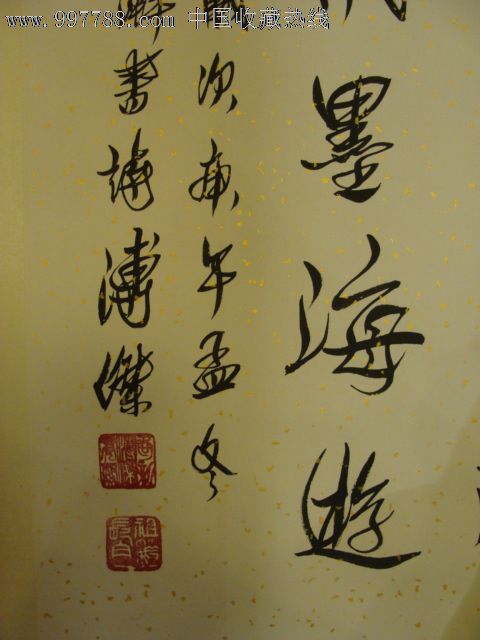 www.997788.com 中国收藏热线
墨海遊
次庚午孟冬
書溥傑